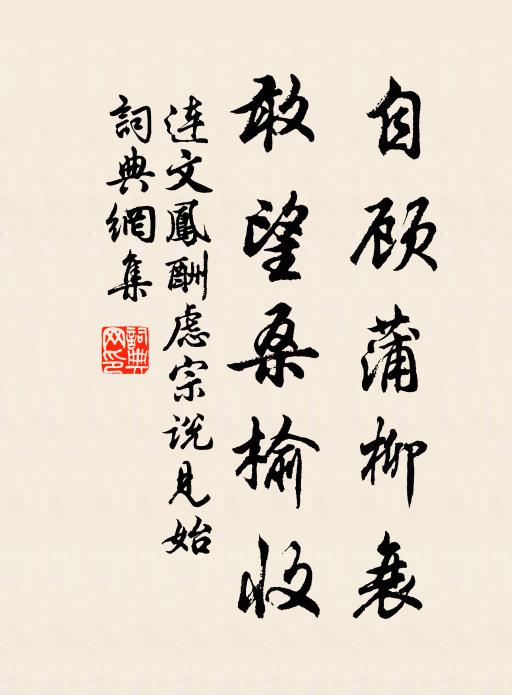 自顾蒲柳衰
敢望桑榆收
连文鳳酬虑宗说见始
詞典網集
詞典網印